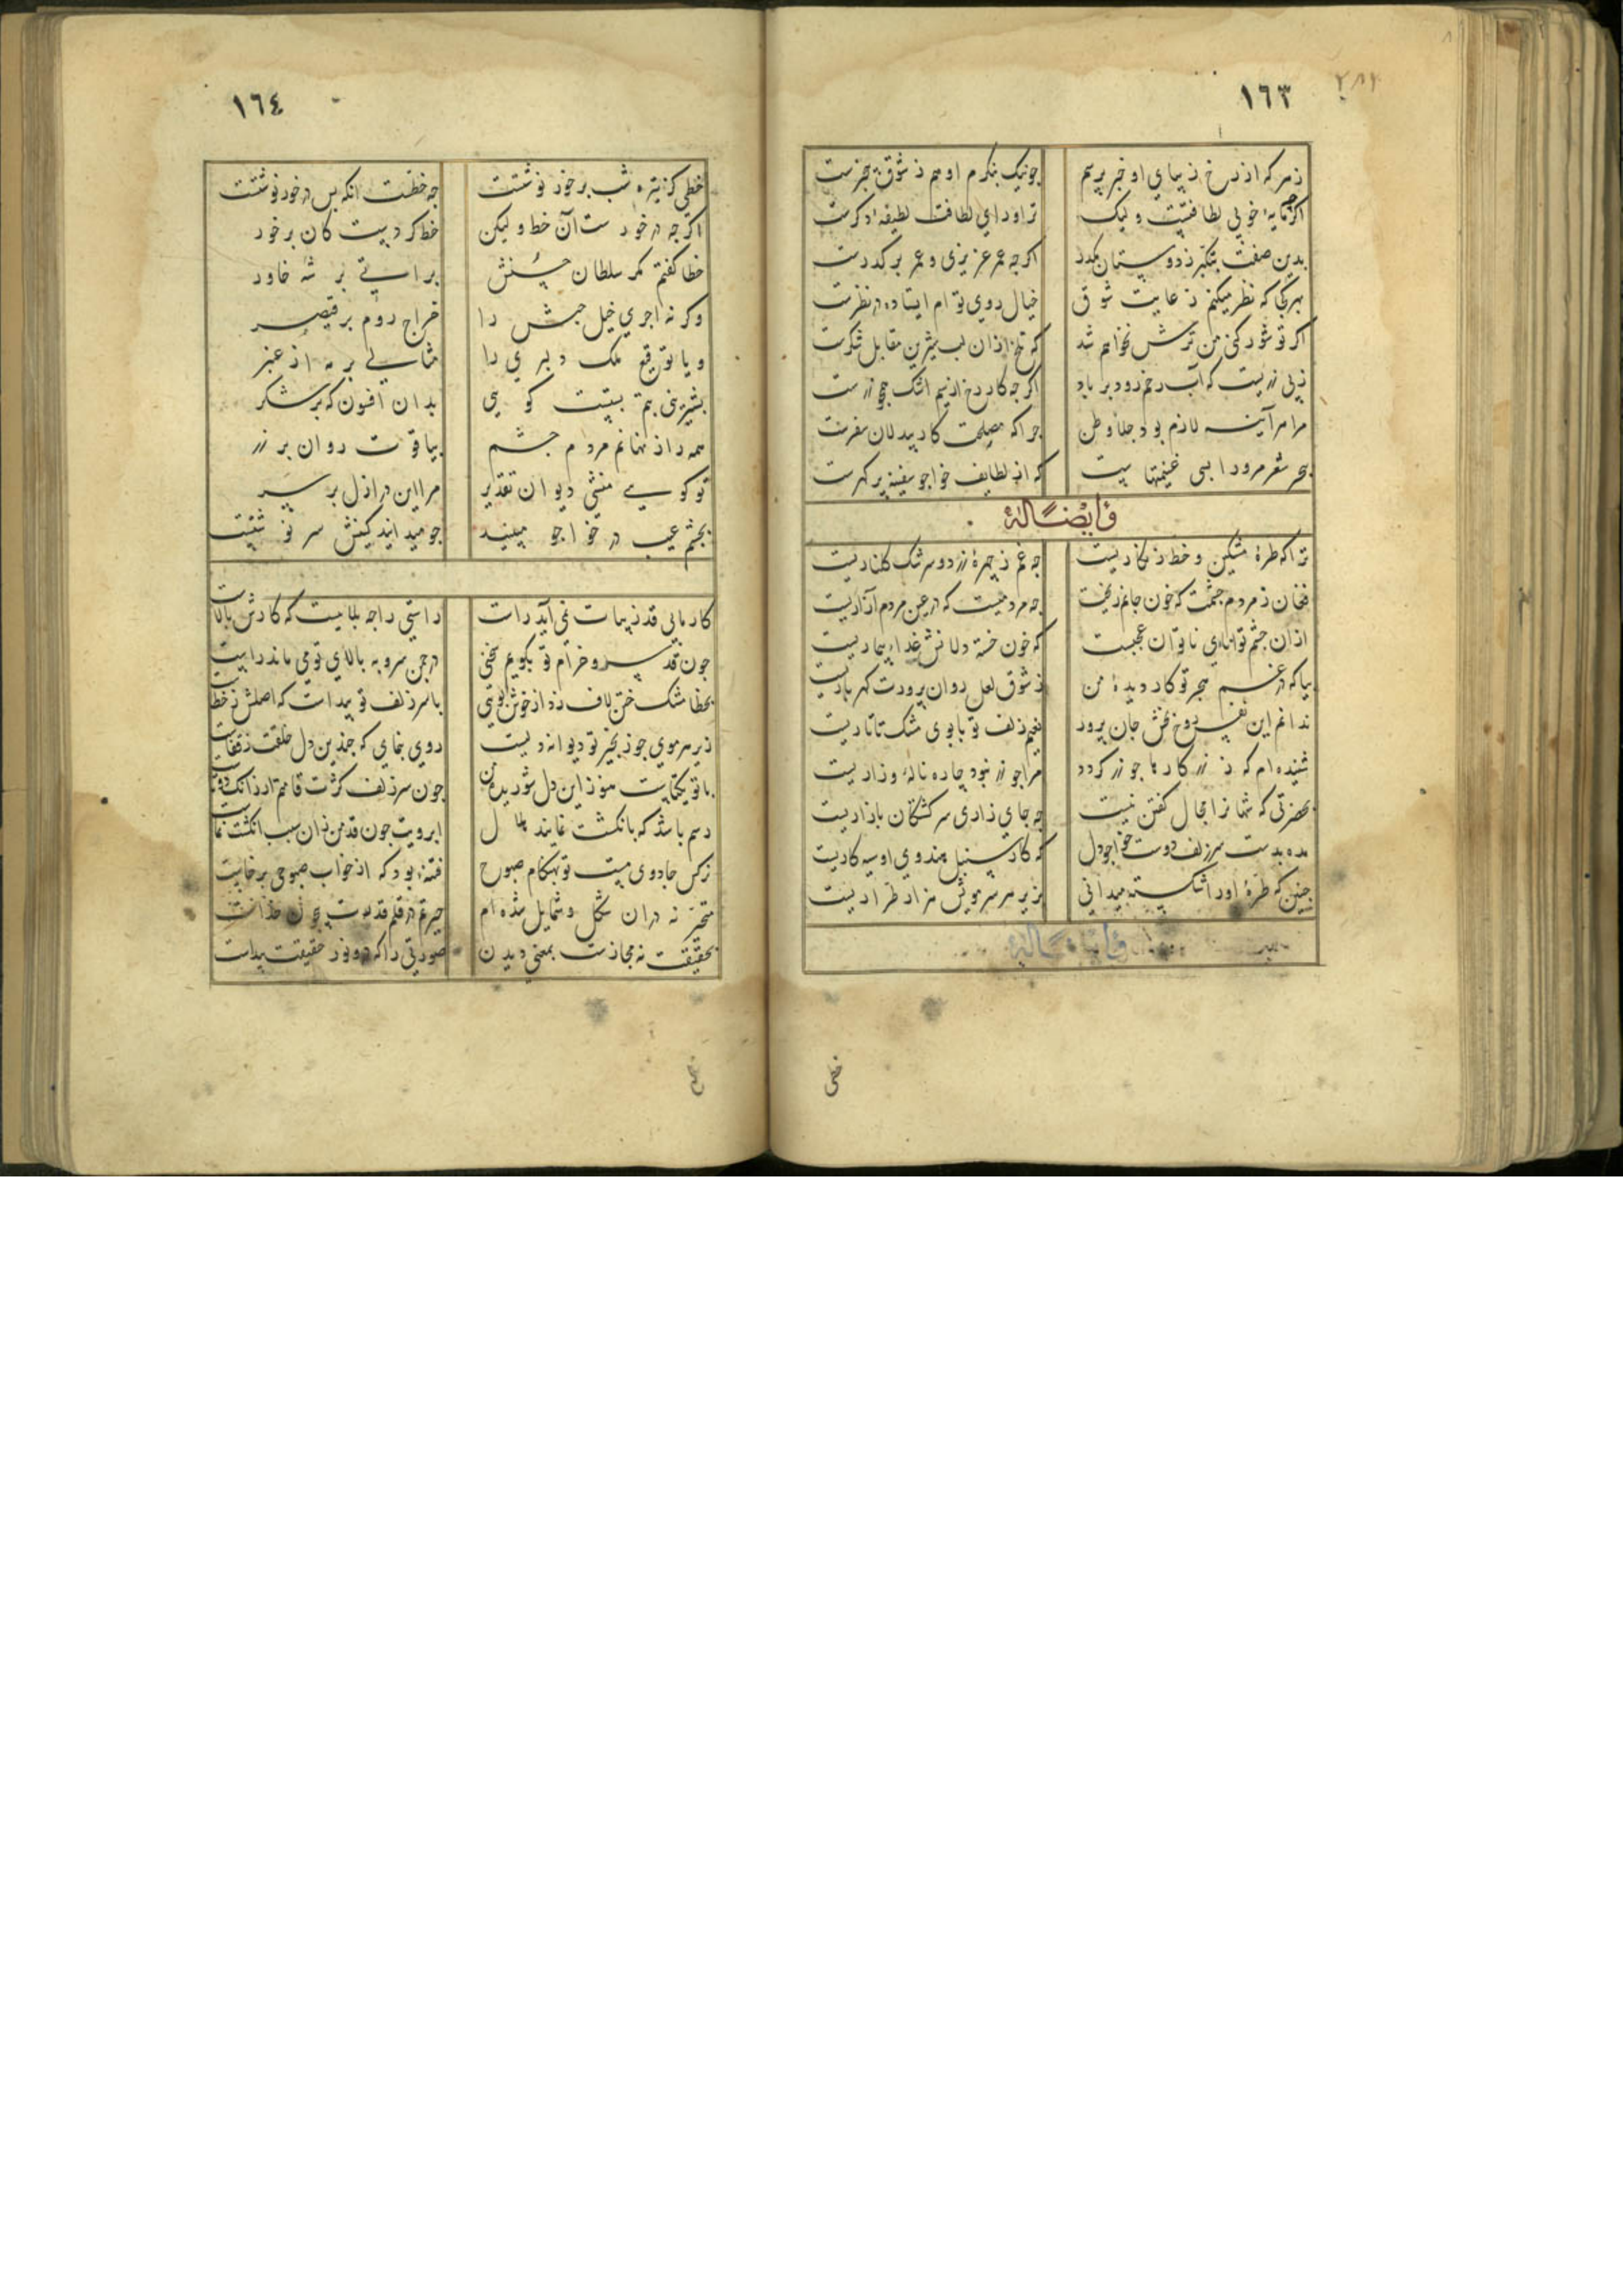 ١٦٣
ز هر که از رخ زیبای او خبر پرسم چو نیک بنگرم او هم ز شوق بیخبرست
اکرچه مایهٔ خوبی لطافتست ولیک ترا ورای لطافت لطیفهٔ دکرست
بدین صفت بتکبر ز دوستان مکذر اکرچه عمر عزیزی و عمر بر کذرست
بهر کجا که نظر میکنم ز غایت شوق خیال روی توام ایستاده در نظرست
اکر تو شور کنی من ترش نخواهم شد که تلخ از آن لب شیرین مقابل شکرست
ز بی زریست که آب رخم رود بر باد اکرچه کار رخ از سیم اشک همچو زرست
مرا هر آینه لازم بود جلاء وطن چرا که مصلحت کار بیدلان سفرست
بحر شعر مرو را بسی غنیمتهاست که از لطایف خواجو سفینه پر کهرست
و ایضاً له
ترا که طرهٔ مشکین و خط زنکاریست چه غم ز چهرهٔ زرد و سرشک کلناریست
فغان ز مردم چشمت که خون جانم ریخت چه مردمیست که در عین مردم آزاریست
از آن چشم توانای ناتوان عجبست که خون خسته دلانش غذاء بیماریست
بیا که در غم هجر تو کار دیدهٔ من ز شوق لعل روان پرورت کهرباریست
ندانم این نفس روح بخش جان پرور نسیم زلف تو یا بوی مشک تاتاریست
شنیده‌ام که ز زر کارها چو زر کردد مرا چو زر نبود چاره ناله و زاریست
بحضرتی که شهانرا مجال کفتن نیست چه جای زاری سرکشتکان بازاریست
مده بدست سر زلف دوست خواجو دل که کار سنبل هندوی او سیه کاریست
چنین که طرهٔ او را شکسته میدانی بزیر هر سر مویش هزار طراریست
و ایضاً له
خطی
١٦٤
خطی کز تیره شب بر خور نوشتست چه خطست آنکه بس در خور نوشتست
اکرچه در خورست آن خط ولیکن خطا کردست کان بر خور
خطا کفتم مکر سلطان حسنش براتی بر شه خاور
و کر نه اجری خیل حبش را خراج روم بر قیصر
و یا توقیع ملک دلبری را مثالی بر مه از عنبر
بشیرینی بتم بیتست کویی بدان افسون که بر شکر
همه راز نهانم مردم چشم بیاقوت روان بر زر
تو کویی منشی دیوان تقدیر مرا این در ازل بر سر
بچشم عیب در خواجو مبینید چو میدانید کینش سرنوشتست
کار بالای قد زیبات نمی‌آید راست راستی را چه بلاییست که کارش بالاست
چون قد سرو خرام تو بکویم سخنی در چمن سرو به بالای تو می‌ماند راست
بخطا مشک ختن لاف زد از خوش بویی با سر زلف تو پیداست که اصلش ز خطاست
زیر هر موی چو زنجیر تو دیوانه دلیست روی بنمای که چندین دل خلقت ز قفاست
با تو یکتاست هنوز این دل شوریدهٔ من چون سر زلف کژت قامتم ار زانک دوتاست
رسم باشد که بانکشت نمایند هلال ابرویت چون قد من زان سبب انکشت نماست
نرکس جادوی مست تو بهنکام صبوح فتنه‌یی بود که از خواب صبوحی برخاست
متحیر نه در آن شکل و شمایل شده‌ام حیرتم در قلم قدرت بیچون خداست
بحقیقت نه مجازست بمعنی دیدن صورتی را که درو نور حقیقت پیداست